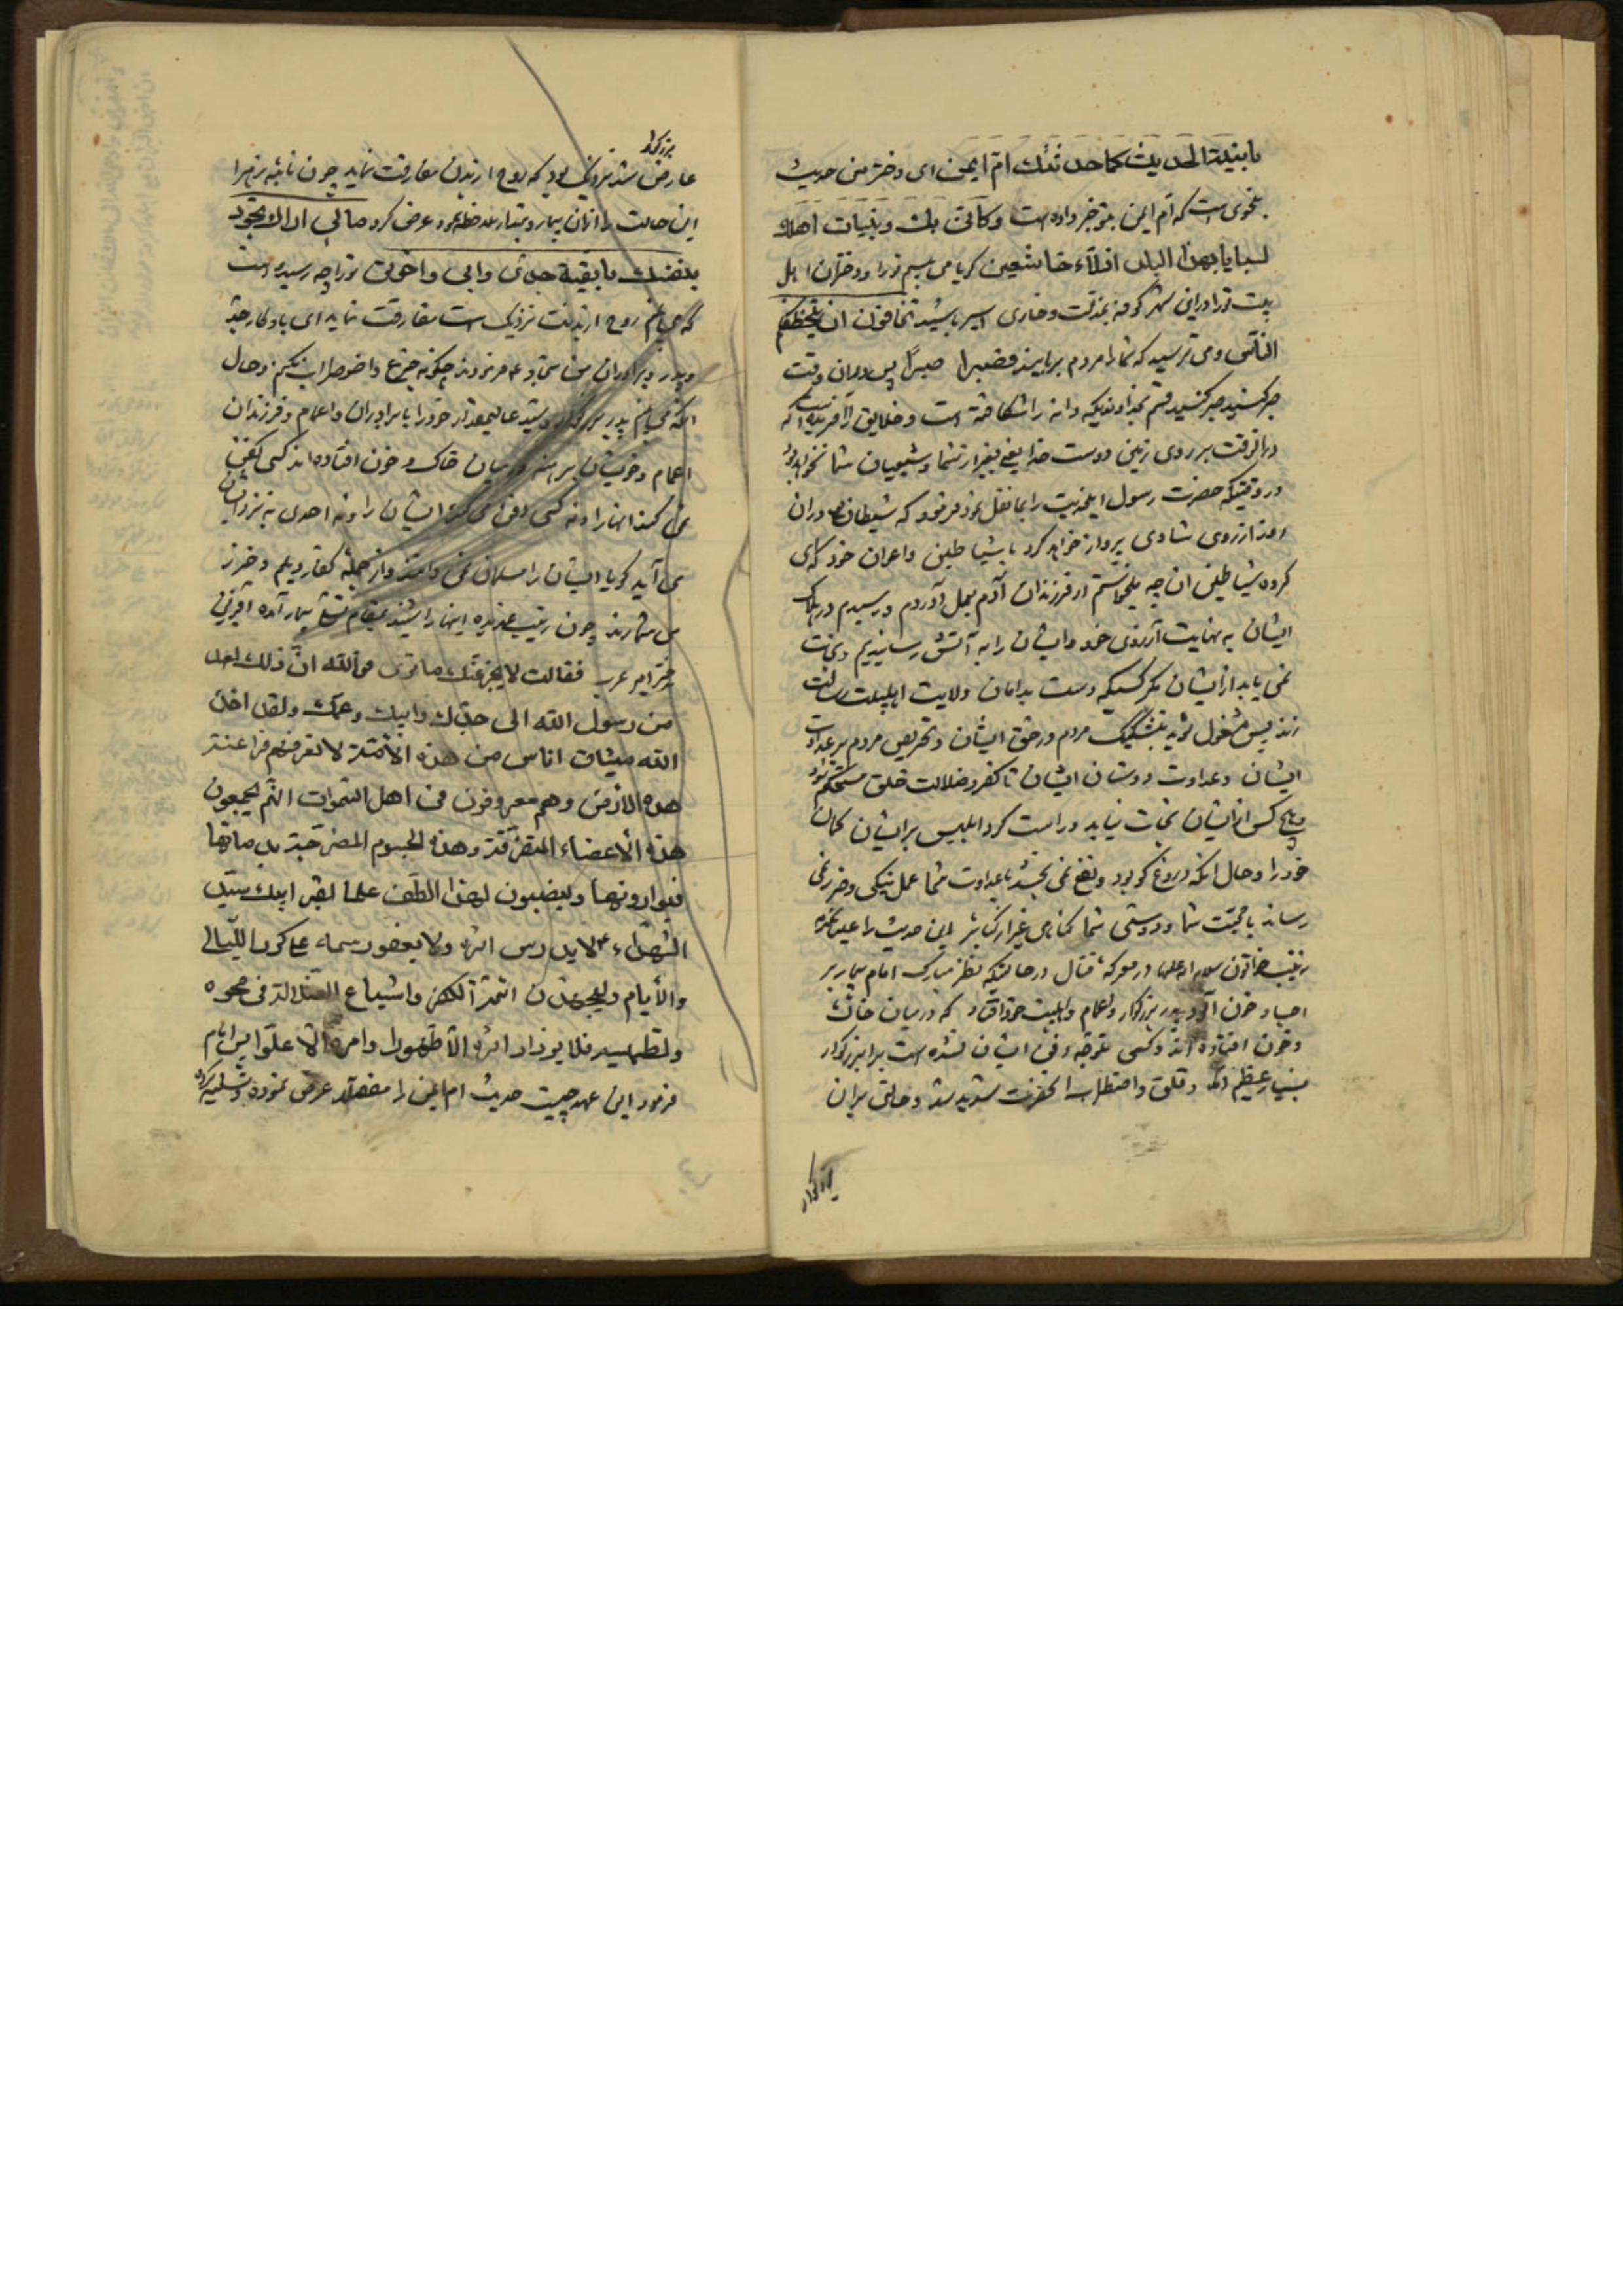 یا بنیة الحدیث کما حدثتک ام ایمن ای دختر من حدیث
بنحوی است که ام ایمن بتو خبر داده است وکانی بک وبنیات اهلک
لسبایا بهذا البلد اذلآء خاشعین گویا می بینم ترا ودختران اهل
بیت ترا در این شهر کوفه بمذلت وخاری اسیر باشید تخافون ان یتخطفکم
الناس ومی ترسید که شما را مردم بربایند فصبرا صبرًا پس در ان وقت
صبر کنید صبر کنید قسم بخداوندیکه دانه را شکافته است وخلایق را آفریده که نیست
در انوقت بر روی زمین دوست خدا یعنی بغیر از شما وشیعیان شما نخواهد بود
در وقتیکه حضرت رسول این حدیث را بما نقل نمود فرمود که شیطان در ان
روز از روی شادی پرواز خواهد کرد با شیاطین واعوان خود که ای
گروه شیاطین ان چه میخواستم از فرزندان آدم بعمل آوردم ورسیدم در هلاک
ایشان به نهایت آرزوی خود وایشان را به آتش رسانیدیم ونجات
نمی یابد از ایشان مگر کسیکه دست بدامان ولایت اهلبیت رسالت
زند پس مشغول شوید بتشکیک مردم در حق ایشان وتحریص مردم بر عداوت
ایشان وعداوت دوستان ایشان تا کفر وضلالت خلق مستحکم شود
وهیچ کس از ایشان نجات نیابد وراست کرد ابلیس بر ایشان گمان
خود را وحال انکه دروغ گو بود ونفع نمی بخشد با عداوت شما عمل نیکی وضرر نمی
رساند با محبت شما ودوستی شما گناهی غیر از کبائر این حدیث را علیا مکرمه
زینب خواتون سلام الله علیها در معرکه قتال در حالتیکه نظر مبارک امام بیمار بر
اجساد خون آلود پدر بزرگوار واعمام واهلبیت خود افتاد که در میان خاک
وخون افتاده اند وکسی متوجه دفن ایشان نشده است بر ان بزرگوار
بسیار عظیم آمد وقلق واضطراب انحضرت شدید شد وحالتی بر ان
بزرگوار
بزرگوار
عارض شد نزدیک بود که روح از بدن مفارقت نماید چون نائبه زهرا
این حالت را از ان بیمار وتبدار ملاحظه نمود عرض کرد مالی اراک تجود
بنفسک یا بقیة جدی وابی واخوتی ترا چه رسیده است
که می بینم روح از بدنت نزدیک است مفارقت نماید ای یادگار جد
وپدر وبرادران من امام سجاد ع فرمودند چگونه جزع واضطراب نکنم وحال
انکه می بینم پدر بزرگوار وسید عالیمقدار خود را با برادران واعمام وفرزندان
اعمام وخویشان برهنه در میان خاک وخون افتاده اند کسی کفن
نمی کند انها را ونه کسی دفن می کند ایشان را ونه احدی به نزد ایشان
می آید گویا ایشان را مسلمان نمی دانند واز جمله کفار دیلم وخزر
می شمارند چون زینب غمدیده اینها را شنید بمقام تسلی بیمار آمده
دختر امیر عرب فقالت لا یجزعنک ما تری فوالله ان ذلک لعهد
من رسول الله الی جدک وابیک وعمک ولقد اخذ
الله میثاق اناس من هذه الأمة لا تعرفهم فراعنة
هذه الارض وهم معروفون فی اهل السموات انهم یجمعون
هذه الأعضاء المتفرقة وهذه الجسوم المضرجة
فیوارونها وینصبون لهذا الطف علما لقبر ابیک سید
الشهداء ع لا یدرس اثره ولا یعفو رسمه علی کرور اللیالی
والأیام ولیجهدن ائمة الکفر واشیاع الضلالة فی محوه
وتطمیسه فلا یزداد اثره الا ظهورا وامره الا علوا پس امام
فرمود این عهد چیست حدیث ام ایمن را مفصلا عرض نموده